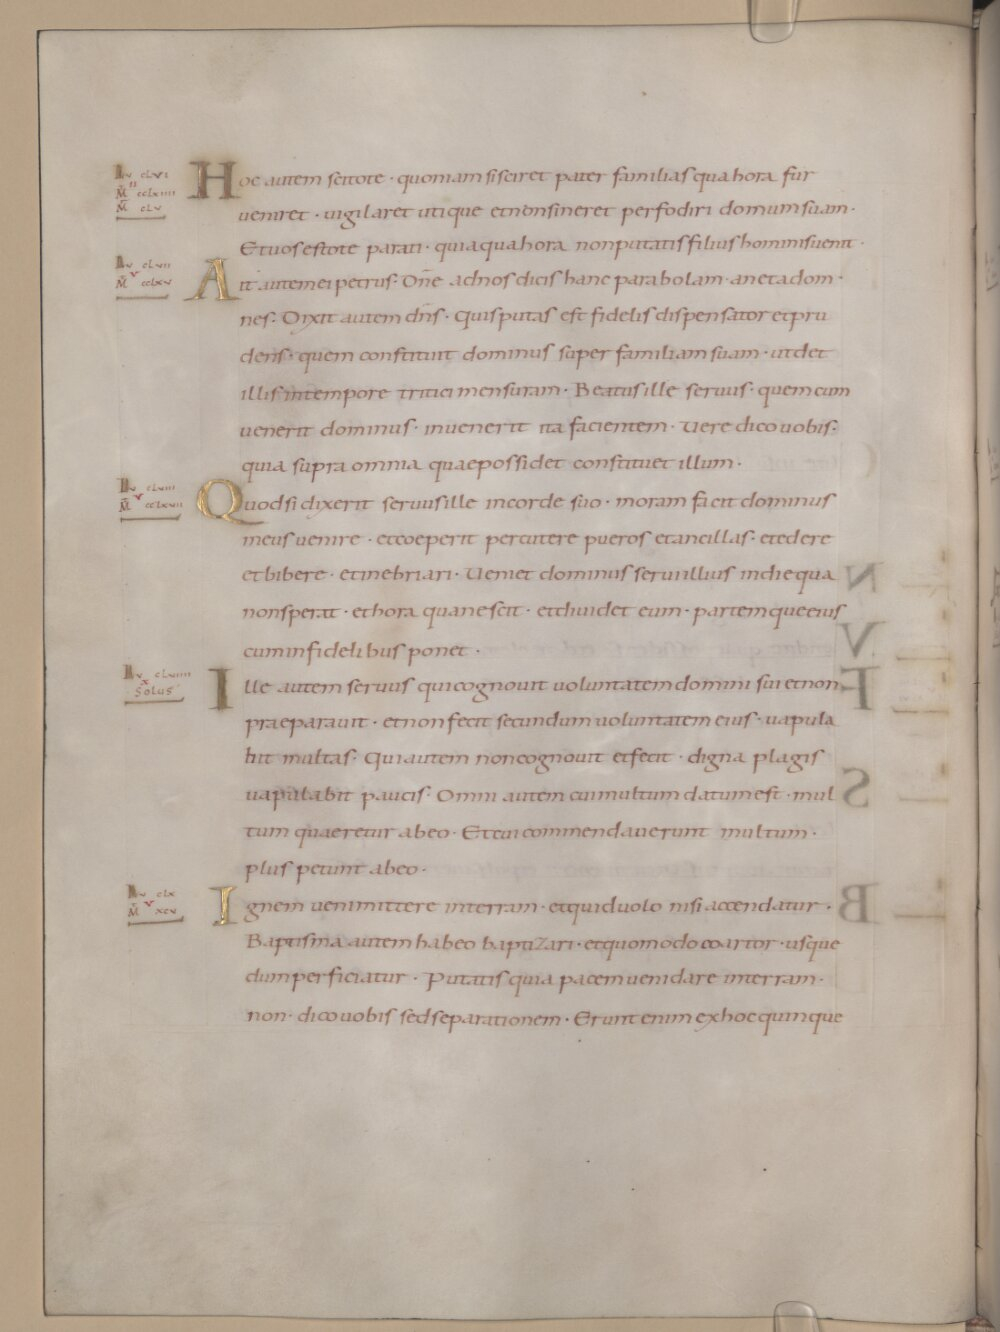 Lv clvi
M̄ ii cclxiiii
M̄ clv
Hoc autem scitote · quoniam si sciret pater familias qua hora fur
veniret · vigilaret utique et non sineret perfodiri domum suam ·
Et vos estote parati · quia qua hora non putatis filius hominis venit ·
Lv clvii
M̄ v cclxv
Ait autem ei petrus · Dn̄e ad nos dicis hanc parabolam · an et ad om ·
nes · Dixit autem dn̄s · Quis putas est fidelis dispensator et pru
dens · quem constituit dominus super familiam suam · ut det
illis in tempore tritici mensuram · Beatus ille servus · quem cum
venerit dominus · invenerit ita facientem · Vere dico vobis ·
quia supra omnia quae possidet constituet illum ·
Lv clviii
M̄ v cclxvii
Quod si dixerit servus ille in corde suo · moram facit dominus
meus venire · et coeperit percutere pueros et ancillas · et edere
et bibere · et inebriari · Veniet dominus servi illius in die qua
non sperat · et hora qua nescit · et dividet eum · partemque eius
cum infidelibus ponet ·
Lv clviiii
x
· Solus
Ille autem servus qui cognovit voluntatem domini sui et non
praeparavit · et non fecit secundum voluntatem eius · vapula
bit multas · Qui autem non cognovit et fecit · digna plagis
vapulabit paucis · Omni autem cui multum datum est · mul
tum quaeretur ab eo · Et cui commendaverunt multum ·
plus petunt ab eo ·
Lv clx
M̄ v xcv
Ignem veni mittere in terram · et quid volo nisi accendatur ·
Baptisma autem habeo baptizari · et quomodo coartor · usque
dum perficiatur · Putatis quia pacem veni dare in terram ·
non · dico vobis sed separationem · Erunt enim ex hoc quinque